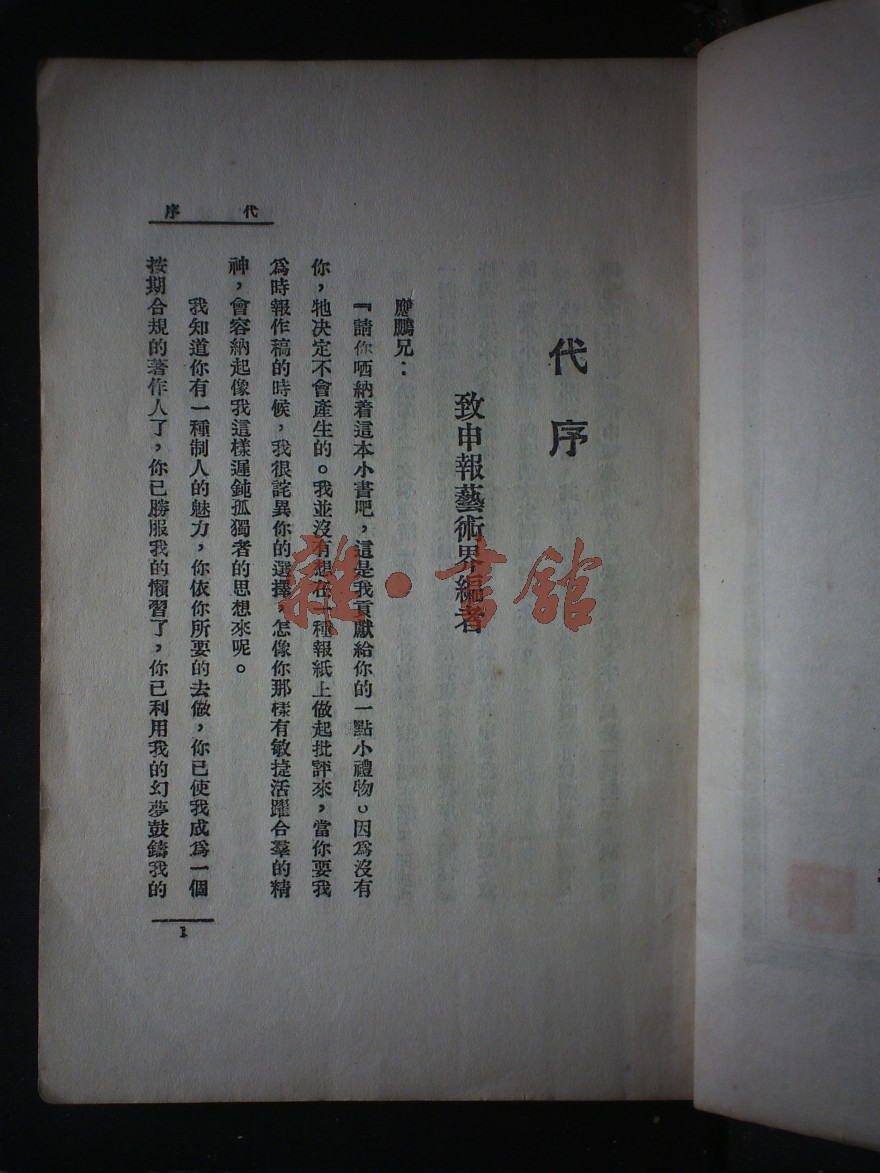 代序
代序
致申報藝術界編者
應鵬兄：
『請你哂納着這本小書吧，這是我貢獻給你的一點小禮物。因爲沒有
你，牠决定不會產生的。我並沒有想在一種報紙上做起批評來，當你要我
爲時報作稿的時候，我很詫異你的選擇，怎像你那樣有敏捷活躍合羣的精
神，會容納起像我這樣遲鈍孤獨者的思想來呢。
我知道你有一種制人的魅力，你依你所要的去做，你已使我成爲一個
按期合規的著作人了，你已勝服我的懶習了，你已利用我的幻夢鼓鑄我的
1
雜·書館